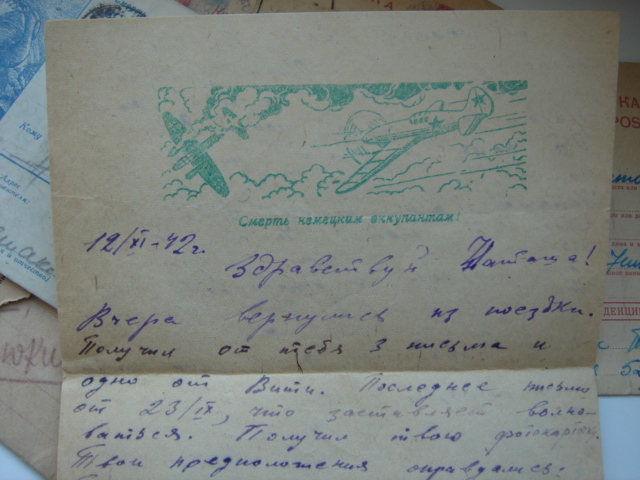 Кому
Смерть немецким оккупантам!
12/XI-42г.
Здравствуй Наташа!
Вчера вернулись из поездки.
Получил от тебя 3 письма и
одно от Вити. Последнее письмо
от 23/IX, что заставляет волно-
ваться. Получил твою фотокарточ.
Твои предположения оправдались.
КА
POS